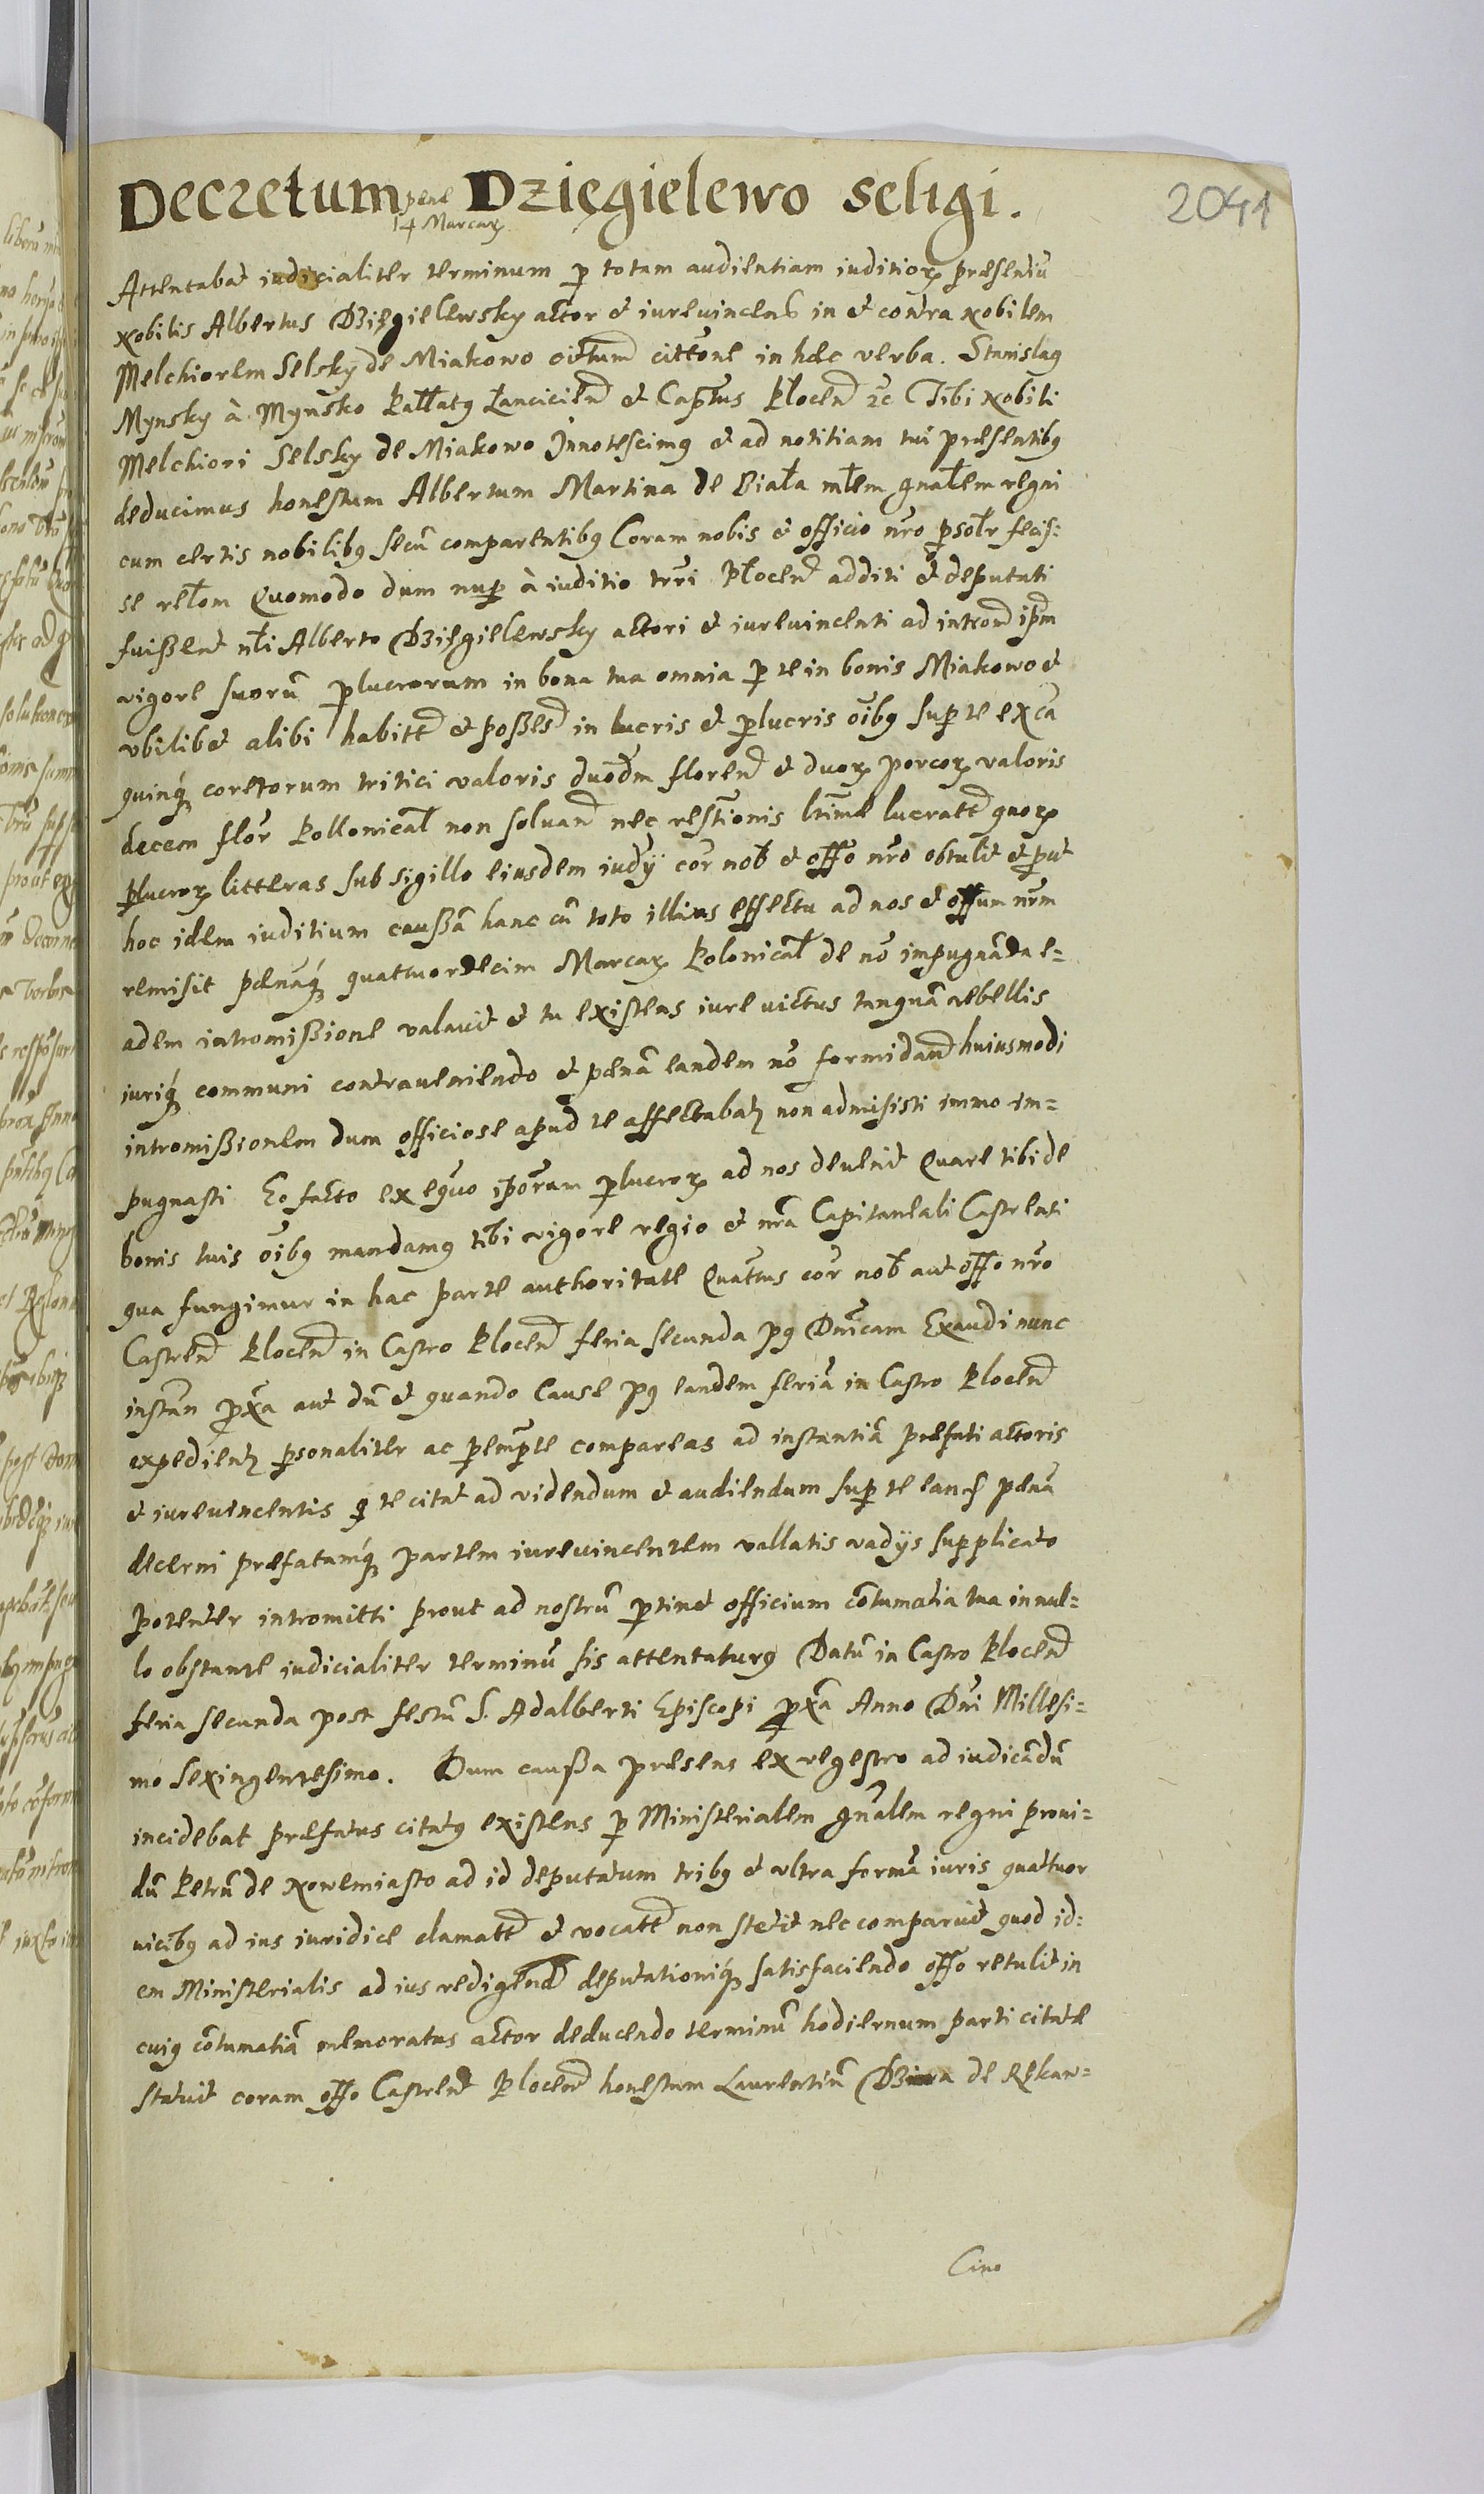 Decretum pene Dzięgielewo seligi.
14 Marcarꝝ
2041
Attentabat iudicialiter terminum ꝑ totam audientiam iuditioꝝ præsentiū
Nobilis Albertus Dzięgielewsky actor et iurevincens in et contra Nobilem
Melchiorem Selsky de Miakowo citatum cittone in hæc verba. Stanislaꝯ
Mynsky à Mynsko Pallatꝯ Lanciciens et Capttus Plocens ꝛc Tibi Nobili
Melchiori Selsky de Miakowo Innotescimꝯ et ad notitiam tui præsentibꝯ
deducimus honestum Albertum Martina de Biała młem gnałem regni
cum certis nobilibꝯ secū comparentibꝯ Coram nobis et officio nro ꝑsolr fecis:
se relom Quomodo dum nuꝑ à iuditio trri Plocens additi et deputati
fuißent nli Alberto Dzięgielewsky actori et iurevincenti ad introm ipm
vigore suorū ꝑlucrorum in bona tua omnia ꝑ te in bonis Miakowo et
ubilibet alibi habitt et poßess in lucris et ꝑlucris oibꝯ suꝑ te ex ca
quinqꝫ coretorum tritici valoris duodm floren et duoꝝ porcoꝝ valoris
decem flor Pollonical non soluan nec restionis ltime lucratt quoꝝ
ꝑlucroꝝ litteras sub sigillo eiusdem iudÿ cor nob et offo nro obtulit et put
hoc idem iuditium caußā hanc cū toto illius effectu ad nos et offum nrm
remisit pænāqꝫ quattuordecim Marcaꝝ Polonical de nō impugnāda e=
adem intromißione valauit et tu existens iure victus tanquā rebellis
iuriqꝫ communi contraueniendo et pænā eandem nō formidan huiusmodi
intromißionem dum officiose apud te affectabatꝫ non admisisti immo im=
pugnasti Eo facto exequo ipōrum ꝑlucroꝝ ad nos deuenit Quare tibi de
bonis tuis oibꝯ mandamꝯ tibi vigore regio et nra Capitaneali Castrensi
qua fungimur in hac parte authoritate Quattus cor nob aut offo nro
Castrens Plocens in Castro Plocens feria secunda pꝯ Dnicam Exaudi nunc
instan ꝓxa aut dū et quando Cause pꝯ eandem feriā in Castro Plocens
expedientꝫ ꝑsonaliter ac ꝑemptē compareas ad instantiā præfati actoris
et iurevincentis q te citat ad videndum et audiendum suꝑ te eand pænā
decerni præfatamqꝫ partem iurevincentem vallatis vadÿs supplicato
potenter intromitti prout ad nostrū ꝑtinet officium cōtumatia tua in nul=
lo obstante iudicialiter terminū sis attentaturꝯ Datū in Castro Plocens
feria secunda post festū S. Adalberti Episcopi ꝓxa Anno Dni Millesi=
mo sexingentesimo. Dum caußa præsens ex regestro ad iudicādū
incidebat præfatus citatꝯ existens ꝑ Ministerialem gnalem regni proui=
dū Petrū de Nowemiasto ad id deputatum tribꝯ et ultra formā iuris quattuor
vicibꝯ ad ius iuridice clamatt et vocatt non stetit nec comparuit quod id=
em Ministerialis ad ius redigend deputationiqꝫ satisfaciendo offo retulit in
cuiꝯ cōtumatiā memoratus actor deducendo terminū hodiernum parti citatæ
statuit coram offo Castrens Plocens honestum Laurentiū de Rekaw=
Cino